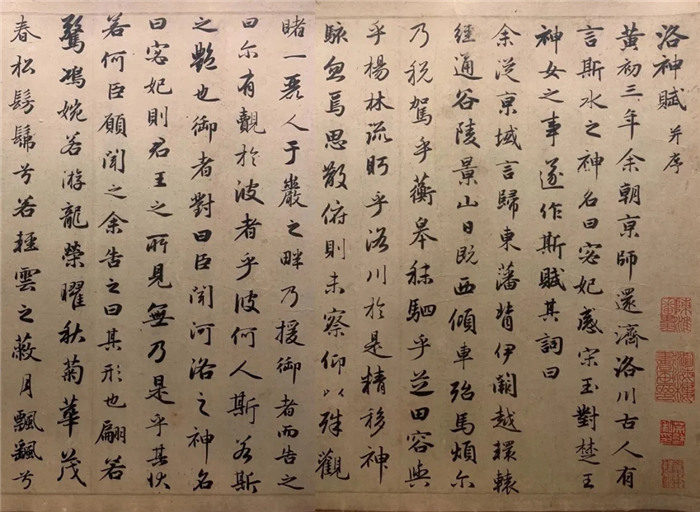 洛神賦 并序
黃初三年余朝京師還濟洛川古人有
言斯水之神名曰宓妃感宋玉對楚王
神女之事遂作斯賦其詞曰
余從京域言歸東藩背伊闕越轘轅
經通谷陵景山日既西傾車殆馬煩尔
乃稅駕乎蘅皋秣駟乎芝田容與
乎楊林流眄乎洛川於是精移神
駭忽焉思散俯則未察仰以殊觀
睹一麗人于巖之畔乃援御者而告之
曰尔有覿於彼者乎彼何人斯若斯
之豔也御者對曰臣聞河洛之神名
曰宓妃則君王之所見無乃是乎其狀
若何臣願聞之余告之曰其形也翩若
驚鴻婉若游龍榮曜秋菊華茂
春松髣髴兮若輕雲之蔽月飄飖兮